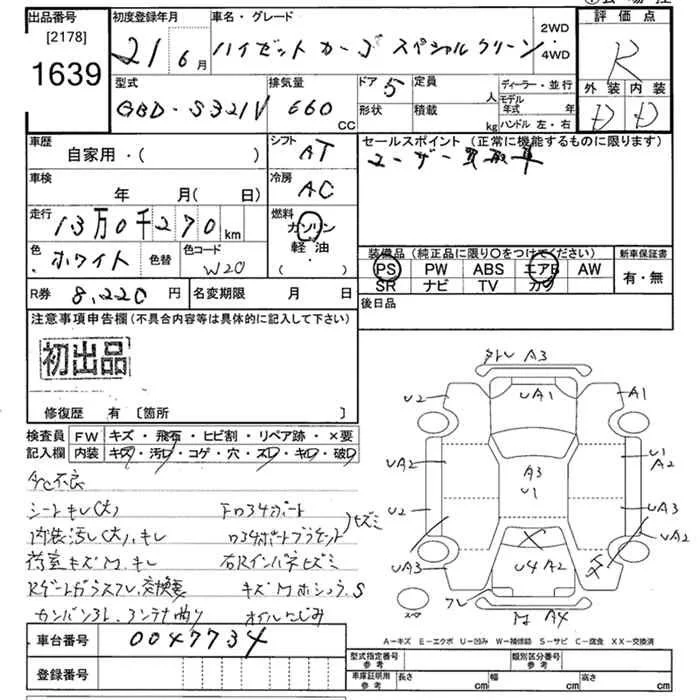 出品番号
[2178]
1639
初度登録年月
21 6月
車名・グレード
ハイゼットカーゴ スペシャルクリーン
2WD
4WD
評価点
R
外装 内装
D D
型式
GBD-S321V
排気量
660 CC
ドア 5
形状
定員 人
積載 kg
ディーラー・並行
モデル年式 年
ハンドル 左・右
車歴
自家用・( )
シフト AT
セールスポイント (正常に機能するものに限ります)
ユーザー買取車
車検
年 月(日)
冷房 AC
走行
13万0千270km
燃料
ガソリン
軽油
・( )
色 ホワイト
色替
色コード W20
装備品 (純正品に限り○をつけてください)
PS PW ABS エアB AW
SR ナビ TV カワ
新車保証書
有・無
R券 8,220円
名変期限 月 日
後日品
注意事項申告欄(不具合内容等は具体的に記入して下さい)
初出品
修復歴 有 [箇所 ]
検査員記入欄
FW キズ・飛石・ヒビ割・リペア跡・×要
内装 キズ・汚レ・コゲ・穴・スレ・キレ・破レ
シートキレ(大)
内装汚レ(大)、キレ
荷室キズM、キレ
Rゲートガラススレ、交換要
F
コアサポート
ヒズミ
右Rインパネヒズミ
オイルにじみ
A3
U2
UA1
A1
UA2
A3
U1
U1
A2
U2
UA3
UA2
UA3
U4 A2
A4
A-キズ E-エクボ U-凹み W-補修跡 S-サビ C-腐食 XX-交換済
車台番号 0047734
登録番号
型式指定番号 参考
類別区分番号 参考
車庫証明用 参考
長さ cm
幅 cm
高さ cm